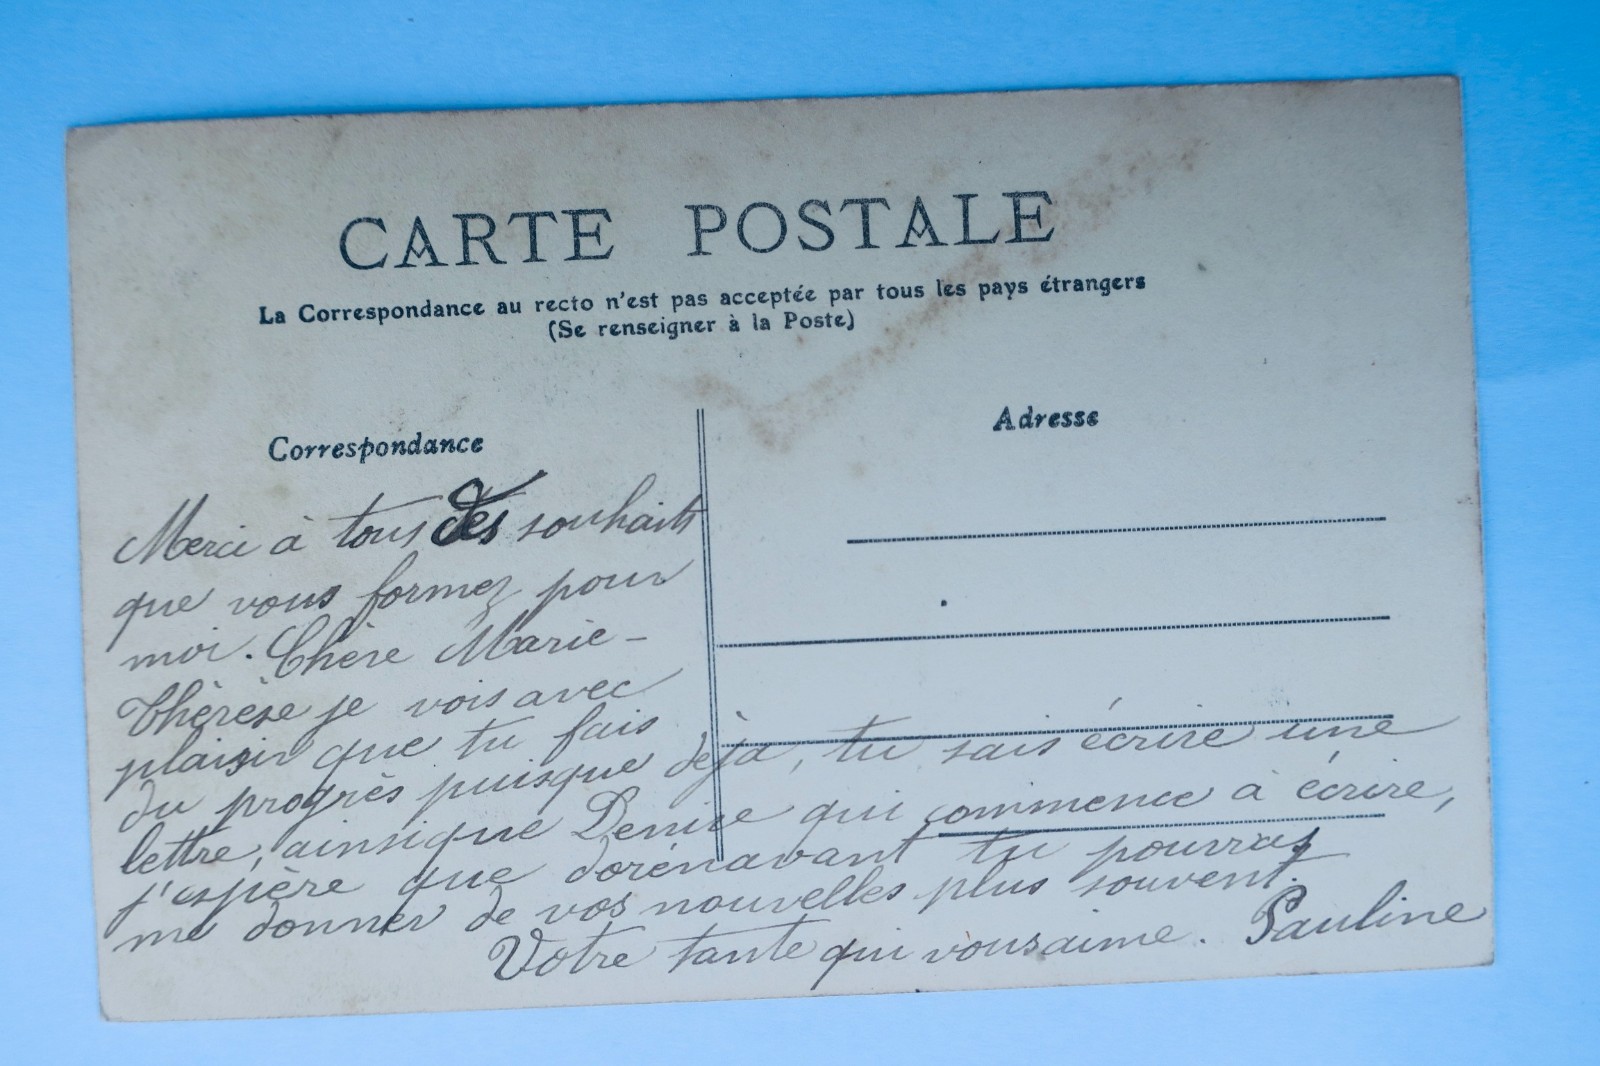 CARTE POSTALE
La Correspondance au recto n'est pas acceptée par tous les pays étrangers
(Se renseigner à la Poste)
Correspondance
Adresse
Merci à tous des souhaits
que vous formez pour
moi. Chère Marie-
Thérèse je vois avec
plaisir que tu fais
du progrès puisque déjà, tu sais écrire une
lettre, ainsi que Denise qui commence à écrire,
j'espère que dorénavant tu pourras
me donner de vos nouvelles plus souvent.
Votre tante qui vous aime. Pauline